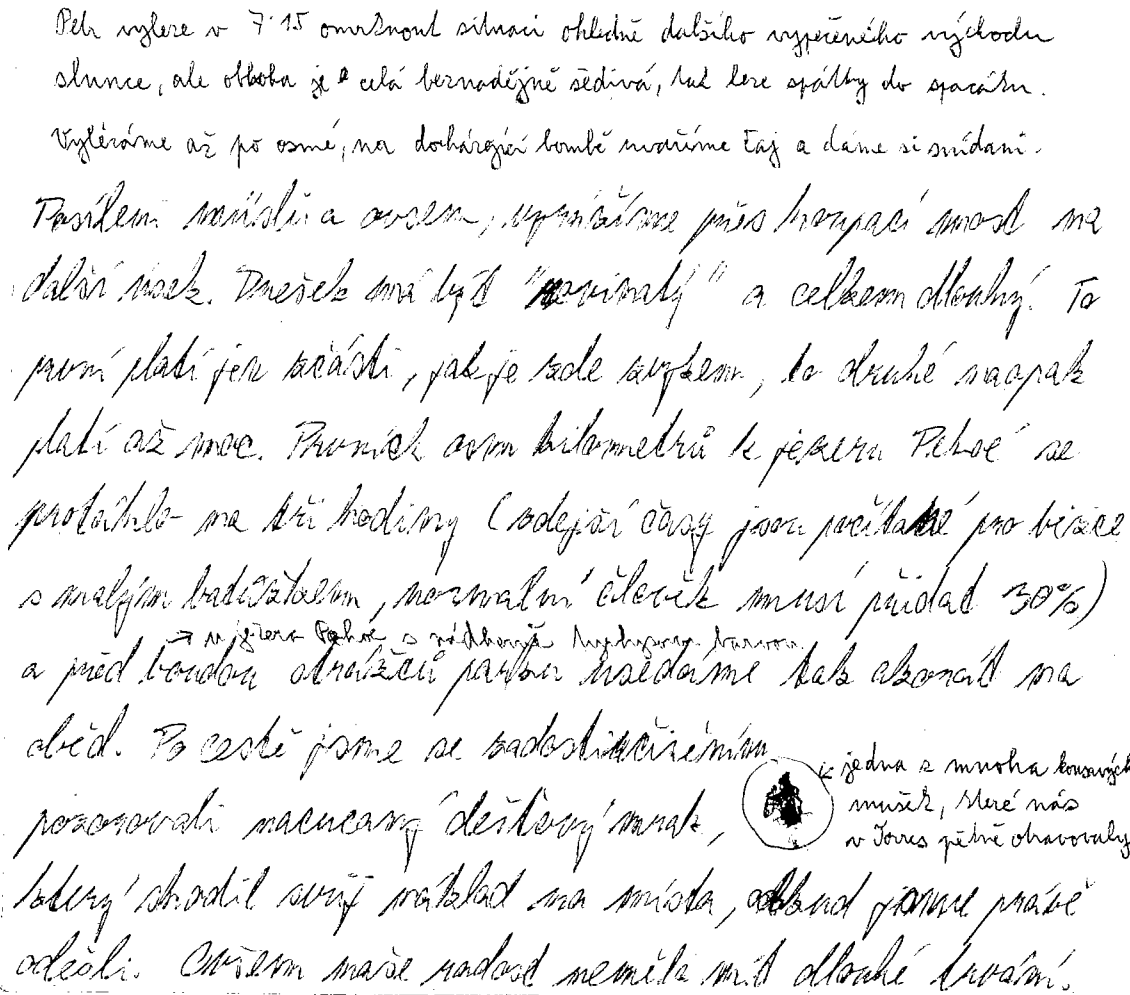 Petr vyleze v 7:15 omrknout situaci ohledně dalšího vypečeného východu
slunce, ale obloha je celá beznadějně šedivá, tak leze zpátky do spacáku.
Vylézáme až po osmé, na docházející bombě uvaříme čaj a dáme si snídani.
Posíleni müsli a ovsem, vyrážíme přes houpací most na
další úsek. Dnešek má být "rovinatý" a celkem dlouhý. To
první platí jen zčásti, jak je zde zvykem, to druhé naopak
platí až moc. Prvních osm kilometrů k jezeru Pehoé se
protáhlo na tři hodiny (zdejší časy jsou počítané pro běžce
s malým batůžkem, normální člověk musí přidat 30%)
→ u jezera Pehoé s nádhernou tyrkysovou barvou
a před boudou strážců parku usedáme tak akorát na
oběd. Po cestě jsme se zadostiučiněním
pozorovali nacucaný dešťový mrak,
který shodil svůj náklad na místa, odkud jsme právě
odešli. Ovšem naše radost neměla mít dlouhé trvání.
jedna z mnoha kousavých
mušek, které nás
v Torres pěkně otravovaly